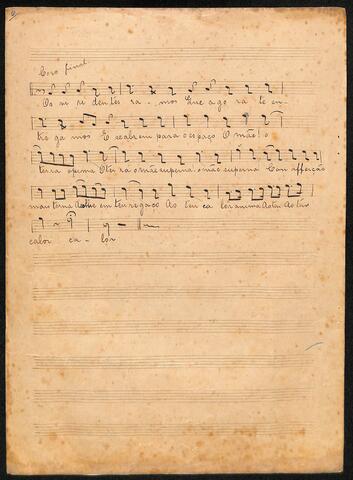 Coro final
Os vi ri den tes ra - mos Que a go ra te en-
tre ga mos E se abrem para o espaço O mãe! o
terra opima O terra o mãe superna o mãe superna Con affeição
mais terna em teu regaço Ao teu ca lor anima Ao teu Ao teu
calor ca - lor